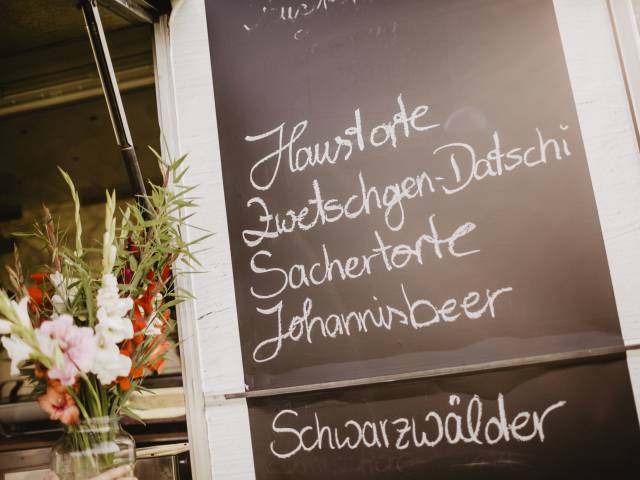 Haustorte
Zwetschgen-Datschi
Sachertorte
Johannisbeer
Schwarzwälder